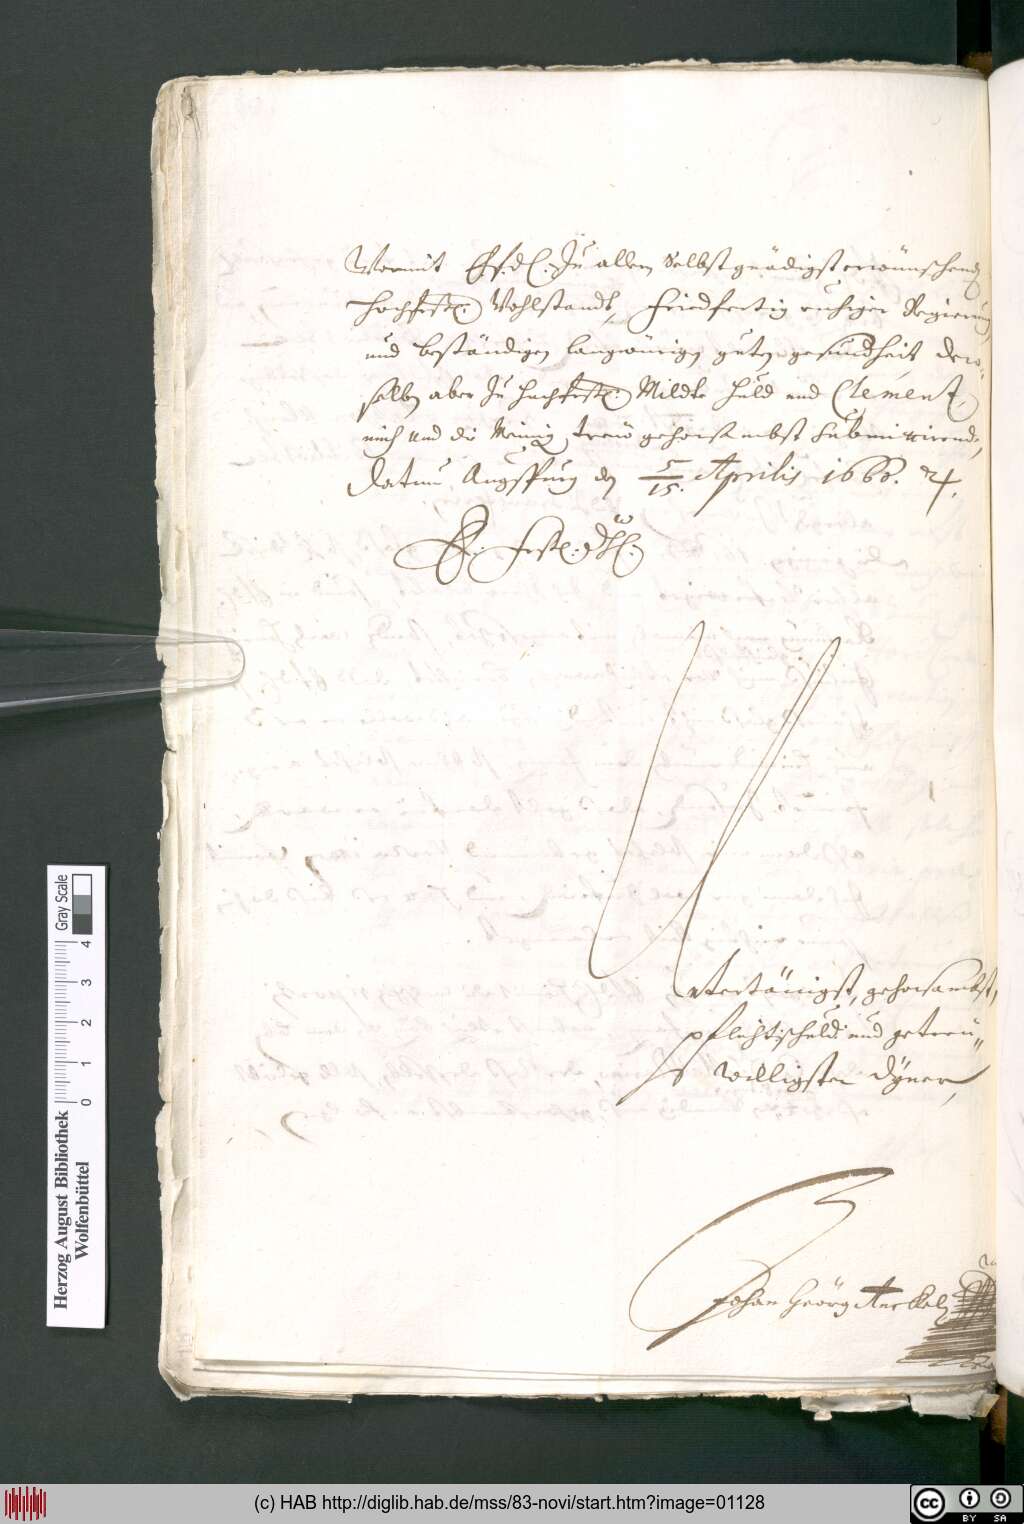 Wormit Ew. fr. dl. Zu allem Selbst gnädigst erwünschend
hochfrstl: Wohlstandt, friedfertig ruhiger Regierung
und beständigen langwürigen guten gesundheit dero
selben aber Zu hochfrstl: Milde Huld und Clementz,
mich und die Meinig treu gehorsambst submittirend,
Datum Augspurg den 5/15. Aprilis 1660. 
Ew: frstl: dhl:
Untertänigst, gehorsambst,
pflichtschuld: und getreu„
willigster dyner,
Johan Geörg Anckel
Herzog August Bibliothek
Wolfenbüttel
0 1 2 3 4
Gray Scale
(c) HAB http://diglib.hab.de/mss/83-novi/start.htm?image=01128
cc BY SA